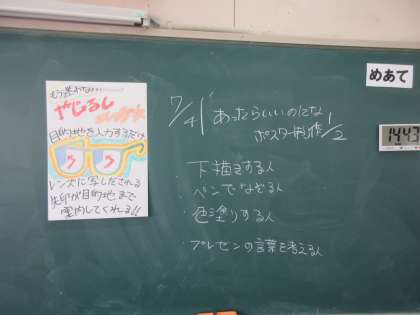 もう迷わない
やじるし
メガネ
目的地を入力するだけ
レンズに写しだされる
矢印が目的地まで
案内してくれる!!
7/4 あったらいいのにな
ポスター制作 1/2
・下描きする人
・ペンでなぞる人
・色塗りする人
・プレゼンの言葉を考える人
めあて
14:43